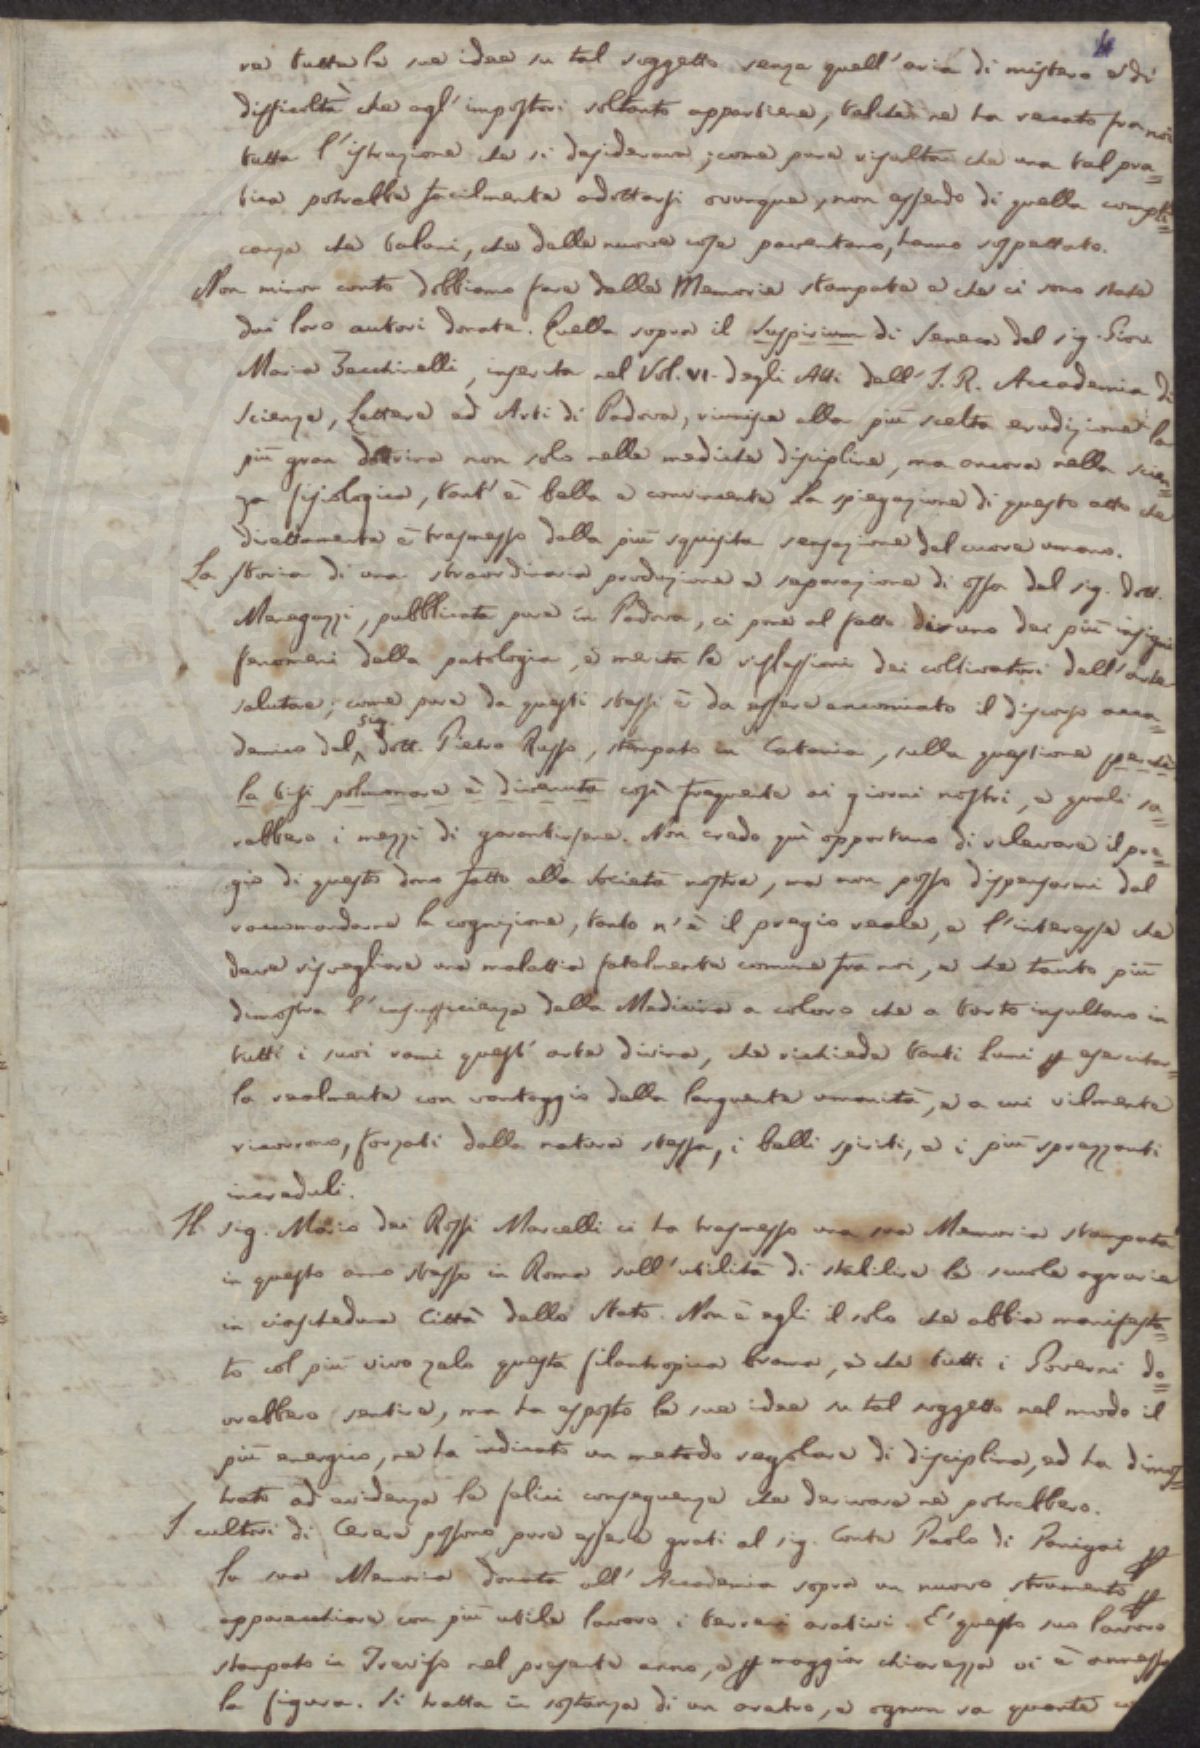 4
re tutte le sue idee su tal soggetto senza quell'aria di mistero e di
difficoltà che agl'impostori soltanto appartiene, talchè ne ha recato fra noi
tutta l'istruzione che si desiderava; come pure risulta che una tal pra=
tica potrebbe facilmente adottarsi ovunque, non essendo di quella compli=
canza che taluni, che delle nuove cose paventano, hanno sospettato.
Non minor conto dobbiamo fare delle Memorie stampate e che ci sono state
dai loro autori donate. Quella sopra il Suspirium di Seneca del sig. Giov.
Maria Zecchinelli, inserita nel Vol. VI. degli Atti dell'I. R. Accademia di
Scienze, Lettere ed Arti di Padova, riunisce alla più scelta erudizione la
più gran dottrina non solo nelle mediche discipline, ma ancora nella scien=
za fisiologica, tant'è bella e convincente la spiegazione di questo atto che
direttamente è trasmesso dalla più squisita sensazione del cuore umano.
La storia di una straordinaria produzione e separazione di ossa del sig. dott.
Menegazzi, pubblicata pure in Padova, ci pone al fatto di uno dei più insigni
fenomeni della patologia, e merita le riflessioni dei coltivatori dell'arte
salutare; come pure da questi stessi è da essere encomiato il discorso acca=
demico del sig. dott. Pietro Russo, stampato in Catania, sulla questione perchè
la tisi polmonare è divenuta così frequente ai giorni nostri, e quali sa=
rebbero i mezzi di garantirsene. Non credo quì opportuno di rilevare il pre=
gio di questo dono fatto alla Società nostra, ma non posso dispensarmi dal
raccomandarne la cognizione, tanto n'è il pregio reale, e l'interesse che
deve risvegliare una malattia fatalmente comune fra noi, e che tanto più
dimostra l'insufficienza della Medicina a coloro che a torto insultano in
tutti i suoi rami quest'arte divina, che richiede tanti lumi per esercitar=
la realmente con vantaggio della languente umanità, e a cui vilmente
ricorrono, forzati dalla natura stessa, i belli spiriti, e i più sprezzanti
increduli.
Il sig. Mario dei Rossi Marcelli ci ha trasmesso una sua Memoria stampata
in questo anno stesso in Roma sull'utilità di stabilire le scuole agrarie
in ciascheduna Città dello Stato. Non è egli il solo che abbia manifesta=
to col più vivo zelo questa filantropica brama, e che tutti i Governi do=
vrebbero sentire, ma ha esposto le sue idee su tal soggetto nel modo il
più energico, ne ha indicato un metodo regolare di disciplina, ed ha dimos=
trato ad evidenza le felici conseguenze che derivare ne potrebbero.
I cultori di Cerere possono pure essere grati al sig. Conte Paolo di Panigai per
la sua Memoria donata all'Accademia sopra un nuovo strumento per
apparecchiare con più utile lavoro i terreni arativi. E' questo suo lavoro
stampato in Treviso nel presente anno, e per maggior chiarezza vi è annessa
la figura. Si tratta in sostanza di un aratro, e ognun sa quante